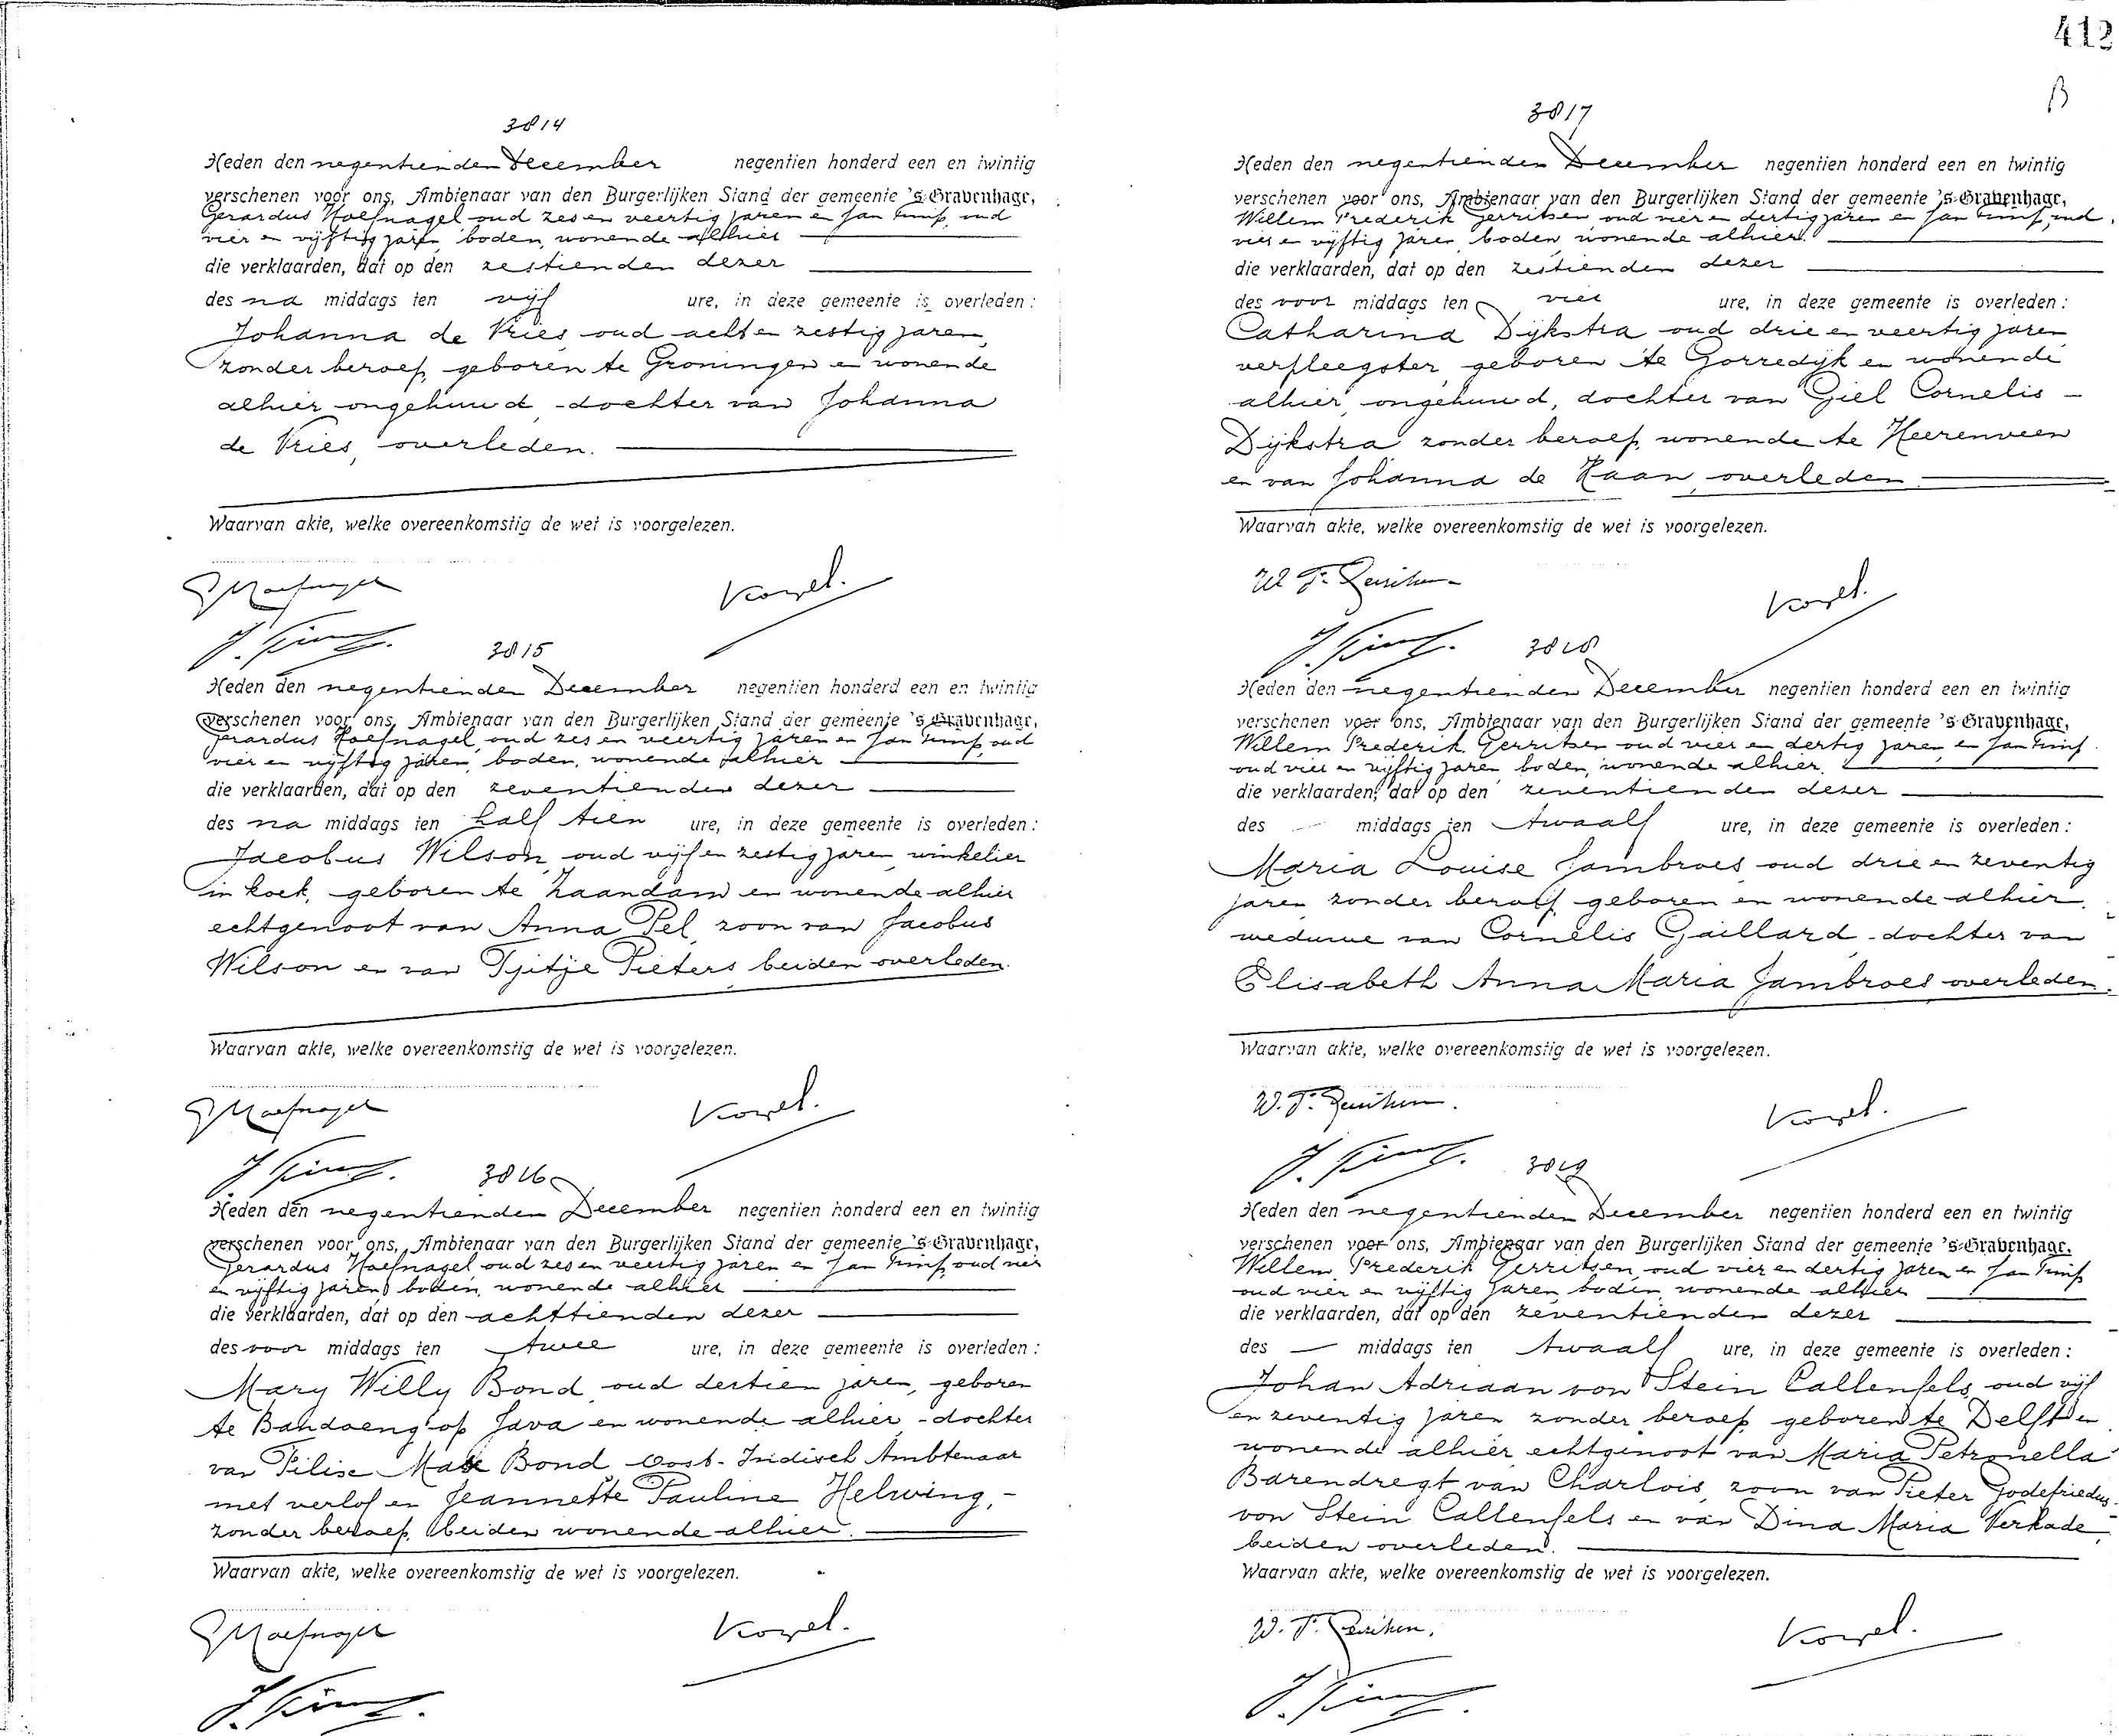 412
B
3814
Heden den negentienden December negentien honderd een en twintig
verschenen voor ons, Ambtenaar van den Burgerlijken Stand der gemeente 's-Gravenhage,
Gerardus Hoefnagel oud zes en veertig jaren en Jan Timp, oud
vier en vijftig jaren, boden, wonende alhier
die verklaarden, dat op den zestienden dezer
des na middags ten vijf ure, in deze gemeente is overleden:
Johanna de Vries, oud acht en zestig jaren,
zonder beroep, geboren te Groningen en wonende
alhier, ongehuwd, dochter van Johanna
de Vries, overleden.
Waarvan akte, welke overeenkomstig de wet is voorgelezen.
G Hoefnagel
J. Timp.
3815
Heden den negentienden December negentien honderd een en twintig
verschenen voor ons, Ambtenaar van den Burgerlijken Stand der gemeente 's-Gravenhage,
Gerardus Hoefnagel, oud zes en veertig jaren en Jan Timp, oud
vier en vijftig jaren, boden, wonende alhier
die verklaarden, dat op den zeventienden dezer
des na middags ten half tien ure, in deze gemeente is overleden:
Jacobus Wilson, oud vijf en zestig jaren, winkelier
in koek, geboren te Zaandam en wonende alhier
echtgenoot van Anna Pel, zoon van Jacobus
Wilson en van Tjitje Pieters, beiden overleden.
Waarvan akte, welke overeenkomstig de wet is voorgelezen.
G Hoefnagel
J Timp.
3816
Heden den negentienden December negentien honderd een en twintig
verschenen voor ons, Ambtenaar van den Burgerlijken Stand der gemeente 's-Gravenhage,
Gerardus Hoefnagel oud zes en veertig jaren en Jan Timp, oud vier
en vijftig jaren, boden, wonende alhier
die verklaarden, dat op den achttienden dezer
des voor middags ten twee ure, in deze gemeente is overleden:
Mary Willy Bond, oud dertien jaren, geboren
te Bandoeng op Java en wonende alhier, dochter
van Bond Oost-Indisch Ambtenaar
met verlof en Jeannette Pauline Helwing,
zonder beroep, beiden wonende alhier.
Waarvan akte, welke overeenkomstig de wet is voorgelezen.
G Hoefnagel
J. Timp.
3817
Heden den negentienden December negentien honderd een en twintig
verschenen voor ons, Ambtenaar van den Burgerlijken Stand der gemeente 's-Gravenhage,
Willem Frederik Gerritsen oud vier en dertig jaren en Jan Timp, oud
vier en vijftig jaren, boden, wonende alhier.
die verklaarden, dat op den zestienden dezer
des voor middags ten vier ure, in deze gemeente is overleden:
Catharina Dijkstra oud drie en veertig jaren
verpleegster, geboren te Gorredijk en wonende
alhier, ongehuwd, dochter van Giel Cornelis
Dijkstra zonder beroep, wonende te Heerenveen
en van Johanna de Haan, overleden
Waarvan akte, welke overeenkomstig de wet is voorgelezen.
W F. Gerritsen
J. Timp.
3818
Heden den negentienden December negentien honderd een en twintig
verschenen voor ons, Ambtenaar van den Burgerlijken Stand der gemeente 's-Gravenhage,
Willem Frederik Gerritsen oud vier en dertig jaren, en Jan Timp.
oud vier en vijftig jaren, boden, wonende alhier.
die verklaarden, dat op den zeventienden dezer
des middags ten twaalf ure, in deze gemeente is overleden:
Maria Louise Jambroes, oud drie en zeventig
jaren zonder beroep, geboren en wonende alhier,
weduwe van Cornelis Gaillard, dochter van
Elisabeth Anna Maria Jambroes overleden.
Waarvan akte, welke overeenkomstig de wet is voorgelezen.
W. F. Gerritsen.
J. Timp.
3819
Heden den negentienden December negentien honderd een en twintig
verschenen voor ons, Ambtenaar van den Burgerlijken Stand der gemeente 's-Gravenhage.
Willem Frederik Gerritsen, oud vier en dertig jaren en Jan Timp
oud vier en vijftig jaren, boden, wonende alhier
die verklaarden, dat op den zeventienden dezer
des middags ten twaalf ure, in deze gemeente is overleden:
Johan Adriaan von Stein Callenfels, oud vijf
en zeventig jaren zonder beroep, geboren te Delft en
wonende alhier echtgenoot van Maria Petronella
Barendregt van Charlois, zoon van Pieter Godefriedus
von Stein Callenfels en van Dina Maria Verkade,
beiden overleden.
Waarvan akte, welke overeenkomstig de wet is voorgelezen.
W. F. Gerritsen.
J. Timp.